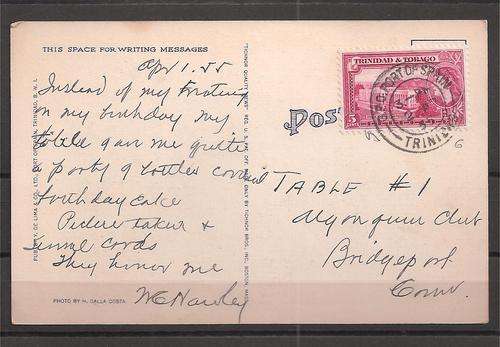 THIS SPACE FOR WRITING MESSAGES
Apr 1. 55
Instead of my
on my birthday my
table gave me quite
a party & bottle cordial
birthday cake
Picture taken &
some cords
They honor me
W C Hawley
PHOTO BY H. DALLA COSTA
PUBL. BY DE LIMA & CO. LTD. PORT OF SPAIN, TRINIDAD, B. W. I.
"TICHNOR QUALITY VIEWS," REG. U. S. PAT. OFF. MADE ONLY BY TICHNOR BROS., INC., BOSTON, MASS.
Pos
TRINIDAD & TOBAGO
5
G.P.O. PORT OF SPAIN
TRINIDAD
6
TABLE #1
Algonquin Club
Bridgeport
Conn.